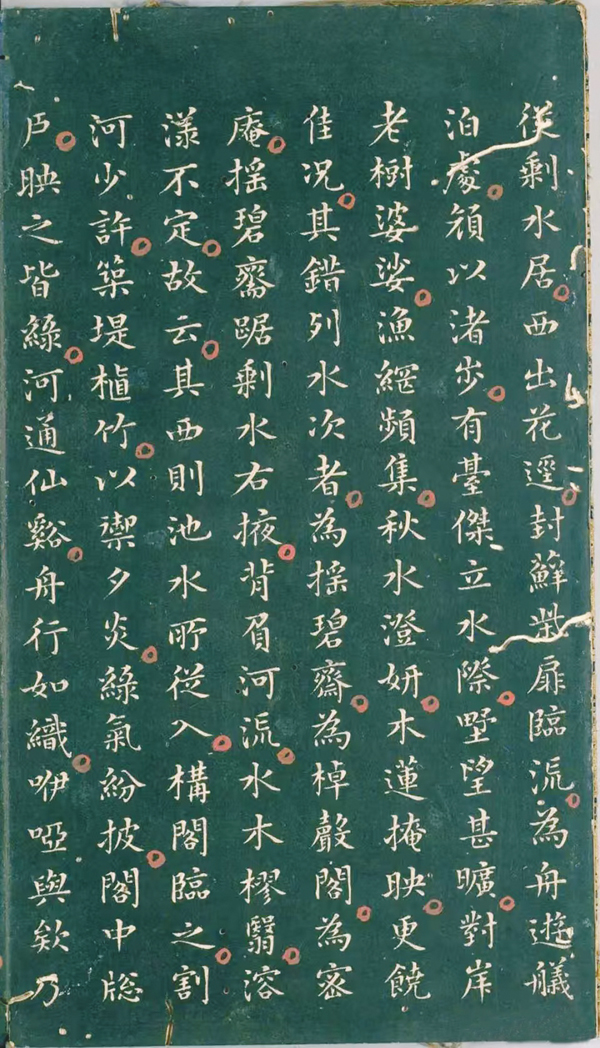 從剩水居西出花逕封蘚柴扉臨流為舟遊艤
泊處頟以渚步有臺傑立水際墅望甚曠對岸
老樹婆娑漁網頻集秋水澄妍木蓮掩映更饒
佳況其錯列水次者為搖碧齋為棹聲閣為密
庵搖碧齋踞剩水右掖背負河流水木樛翳溶
漾不定故云其西則池水所從入構閣臨之割
河少許築堤植竹以禦夕炎綠氣紛披閣中牕
戶映之皆綠河通仙谿舟行如織咿啞與欸乃